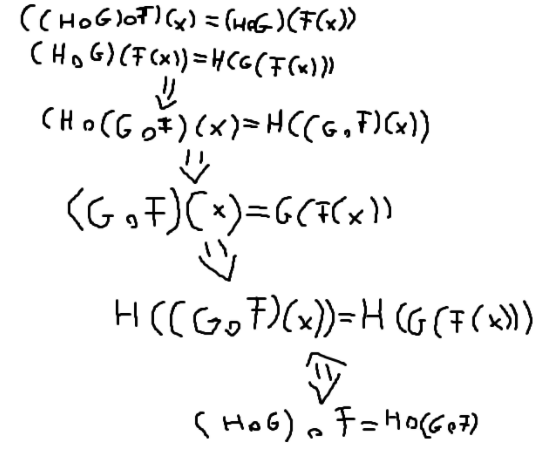 ((H∘G)∘F)(x)=(H∘G)(F(x))
(H∘G)(F(x))=H(G(F(x)))
⇓
(H∘(G∘F)(x)=H((G∘F)(x))
⇓
(G∘F)(x)=G(F(x))
⇓
H((G∘F)(x))=H(G(F(x)))
⇕
(H∘G)∘F=H∘(G∘F)